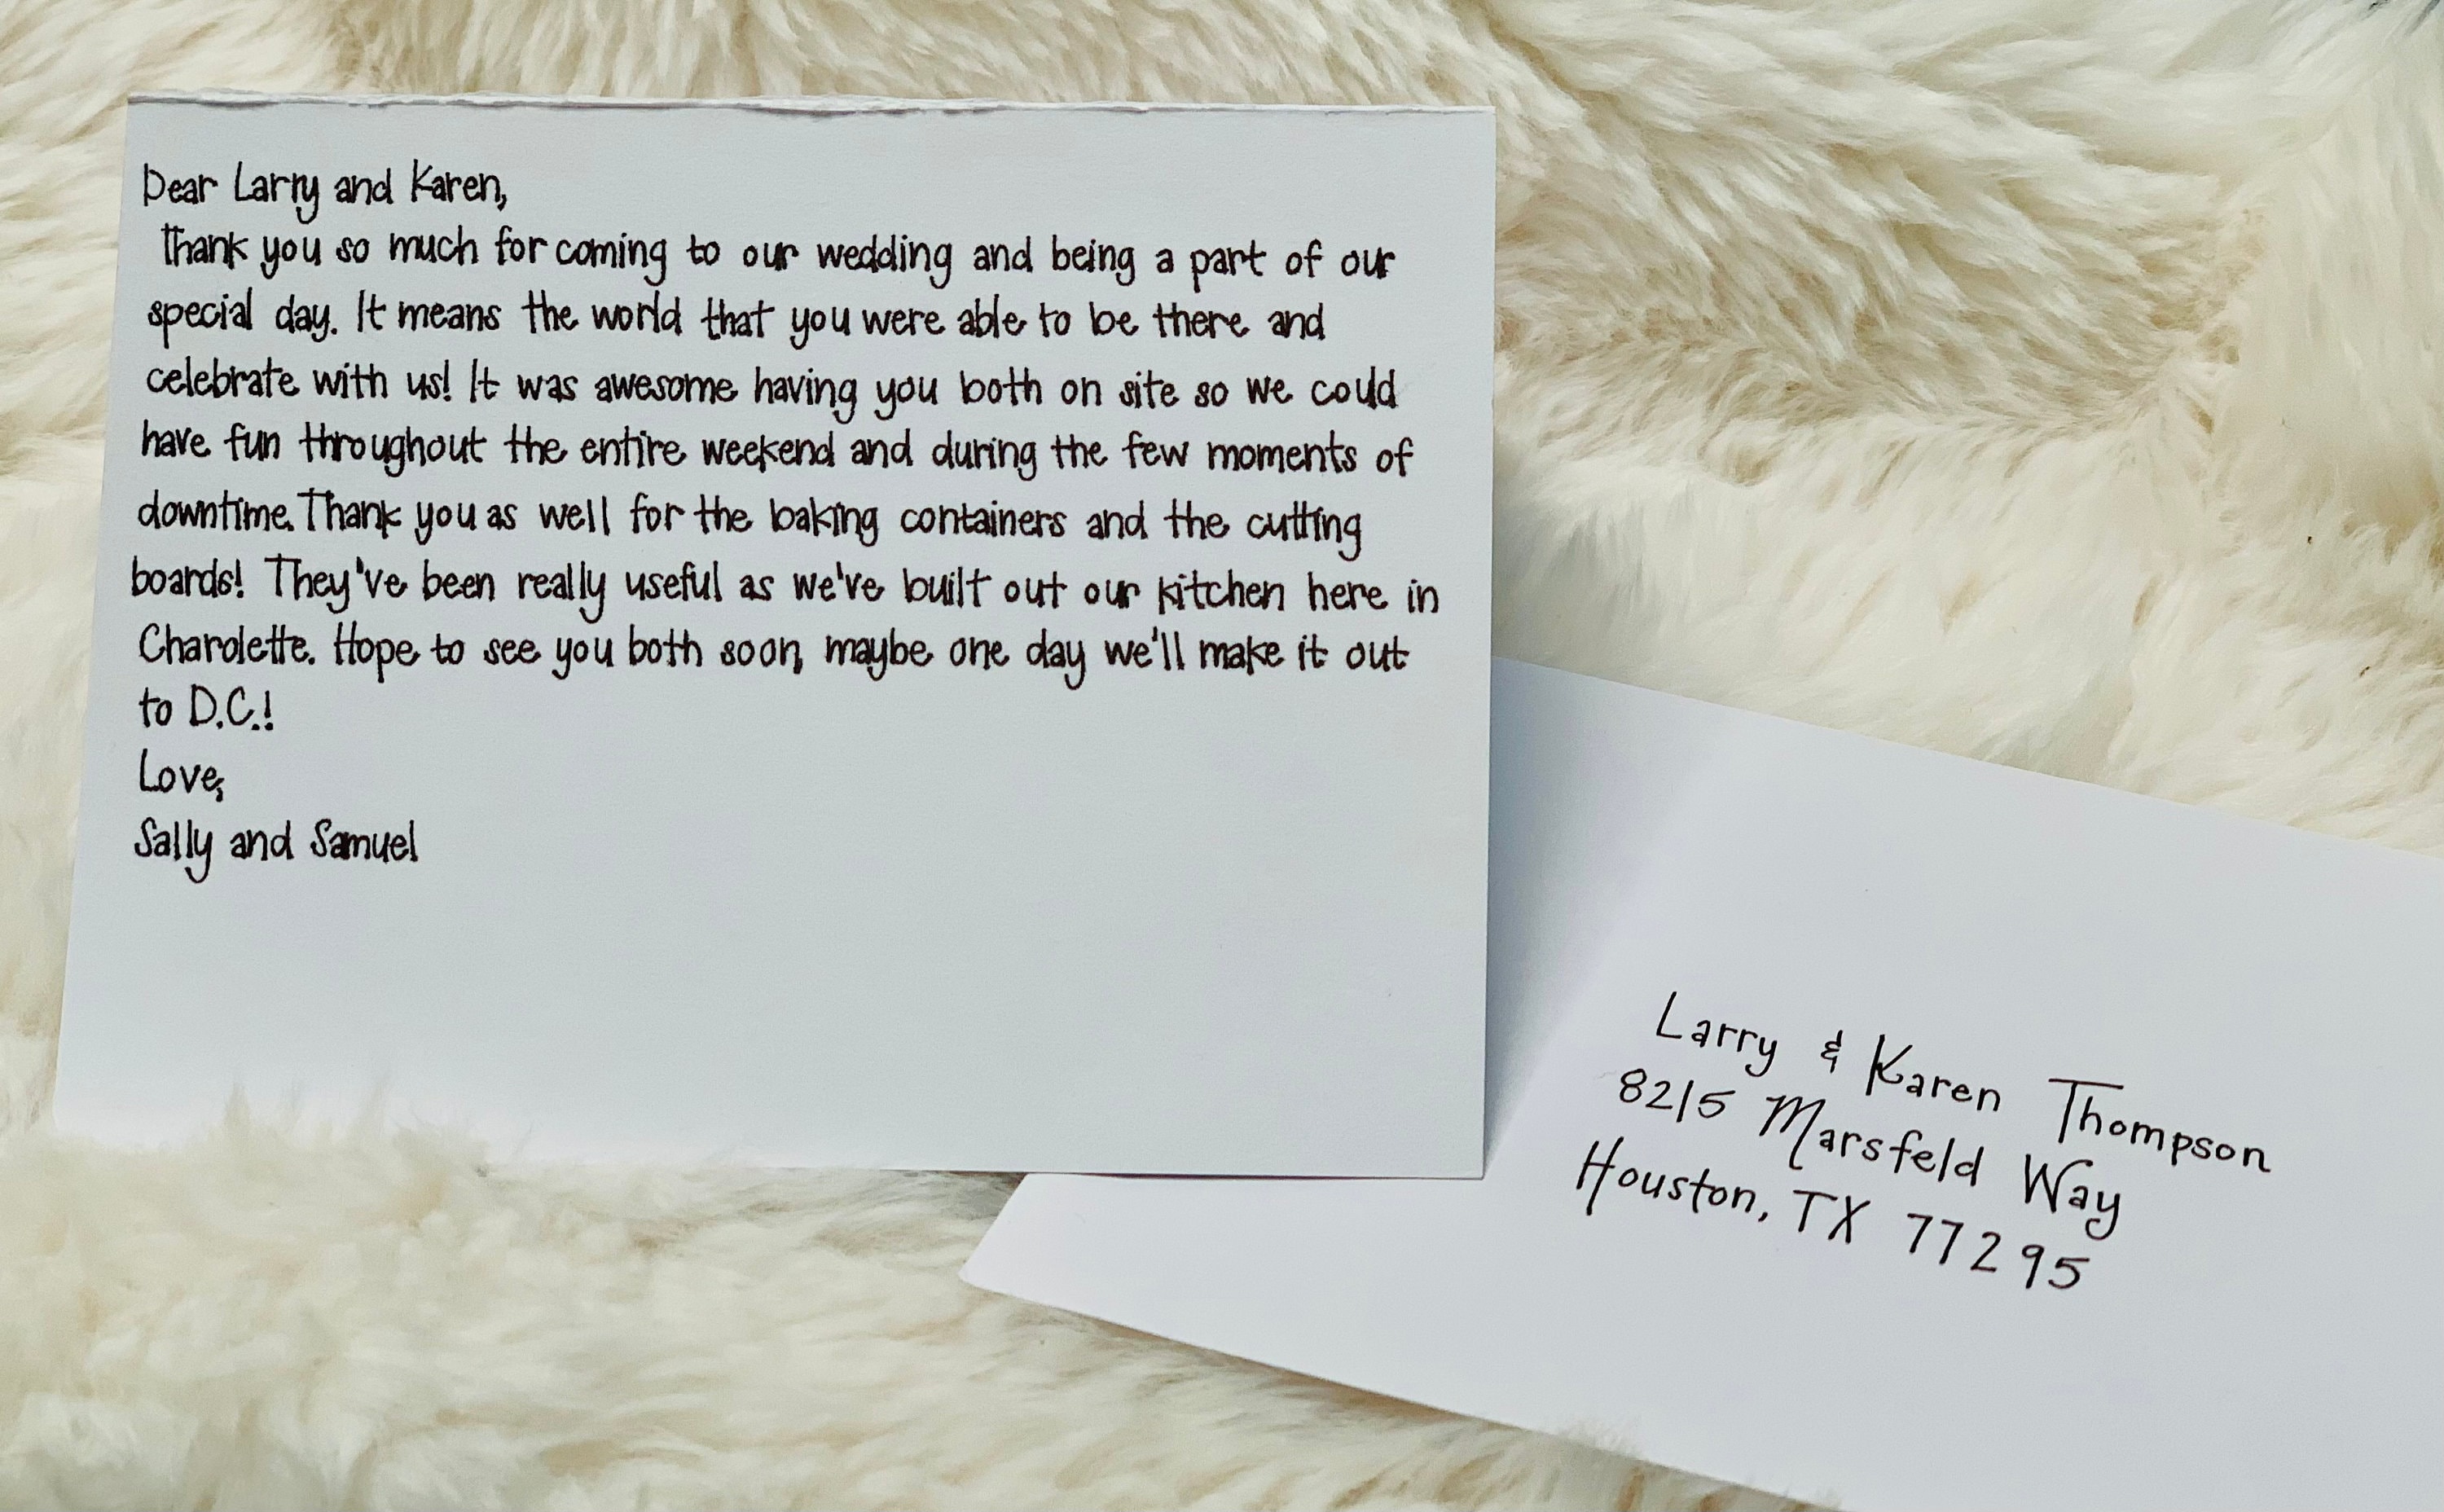 Dear Larry and Karen,
Thank you so much for coming to our wedding and being a part of our
special day. It means the world that you were able to be there and
celebrate with us! It was awesome having you both on site so we could
have fun throughout the entire weekend and during the few moments of
downtime. Thank you as well for the baking containers and the cutting
boards! They've been really useful as we've built out our kitchen here in
Charolette. Hope to see you both soon, maybe one day we'll make it out
to D.C.!
Love,
Sally and Samuel
Larry & Karen Thompson
8215 Marsfeld Way
Houston, TX 77295